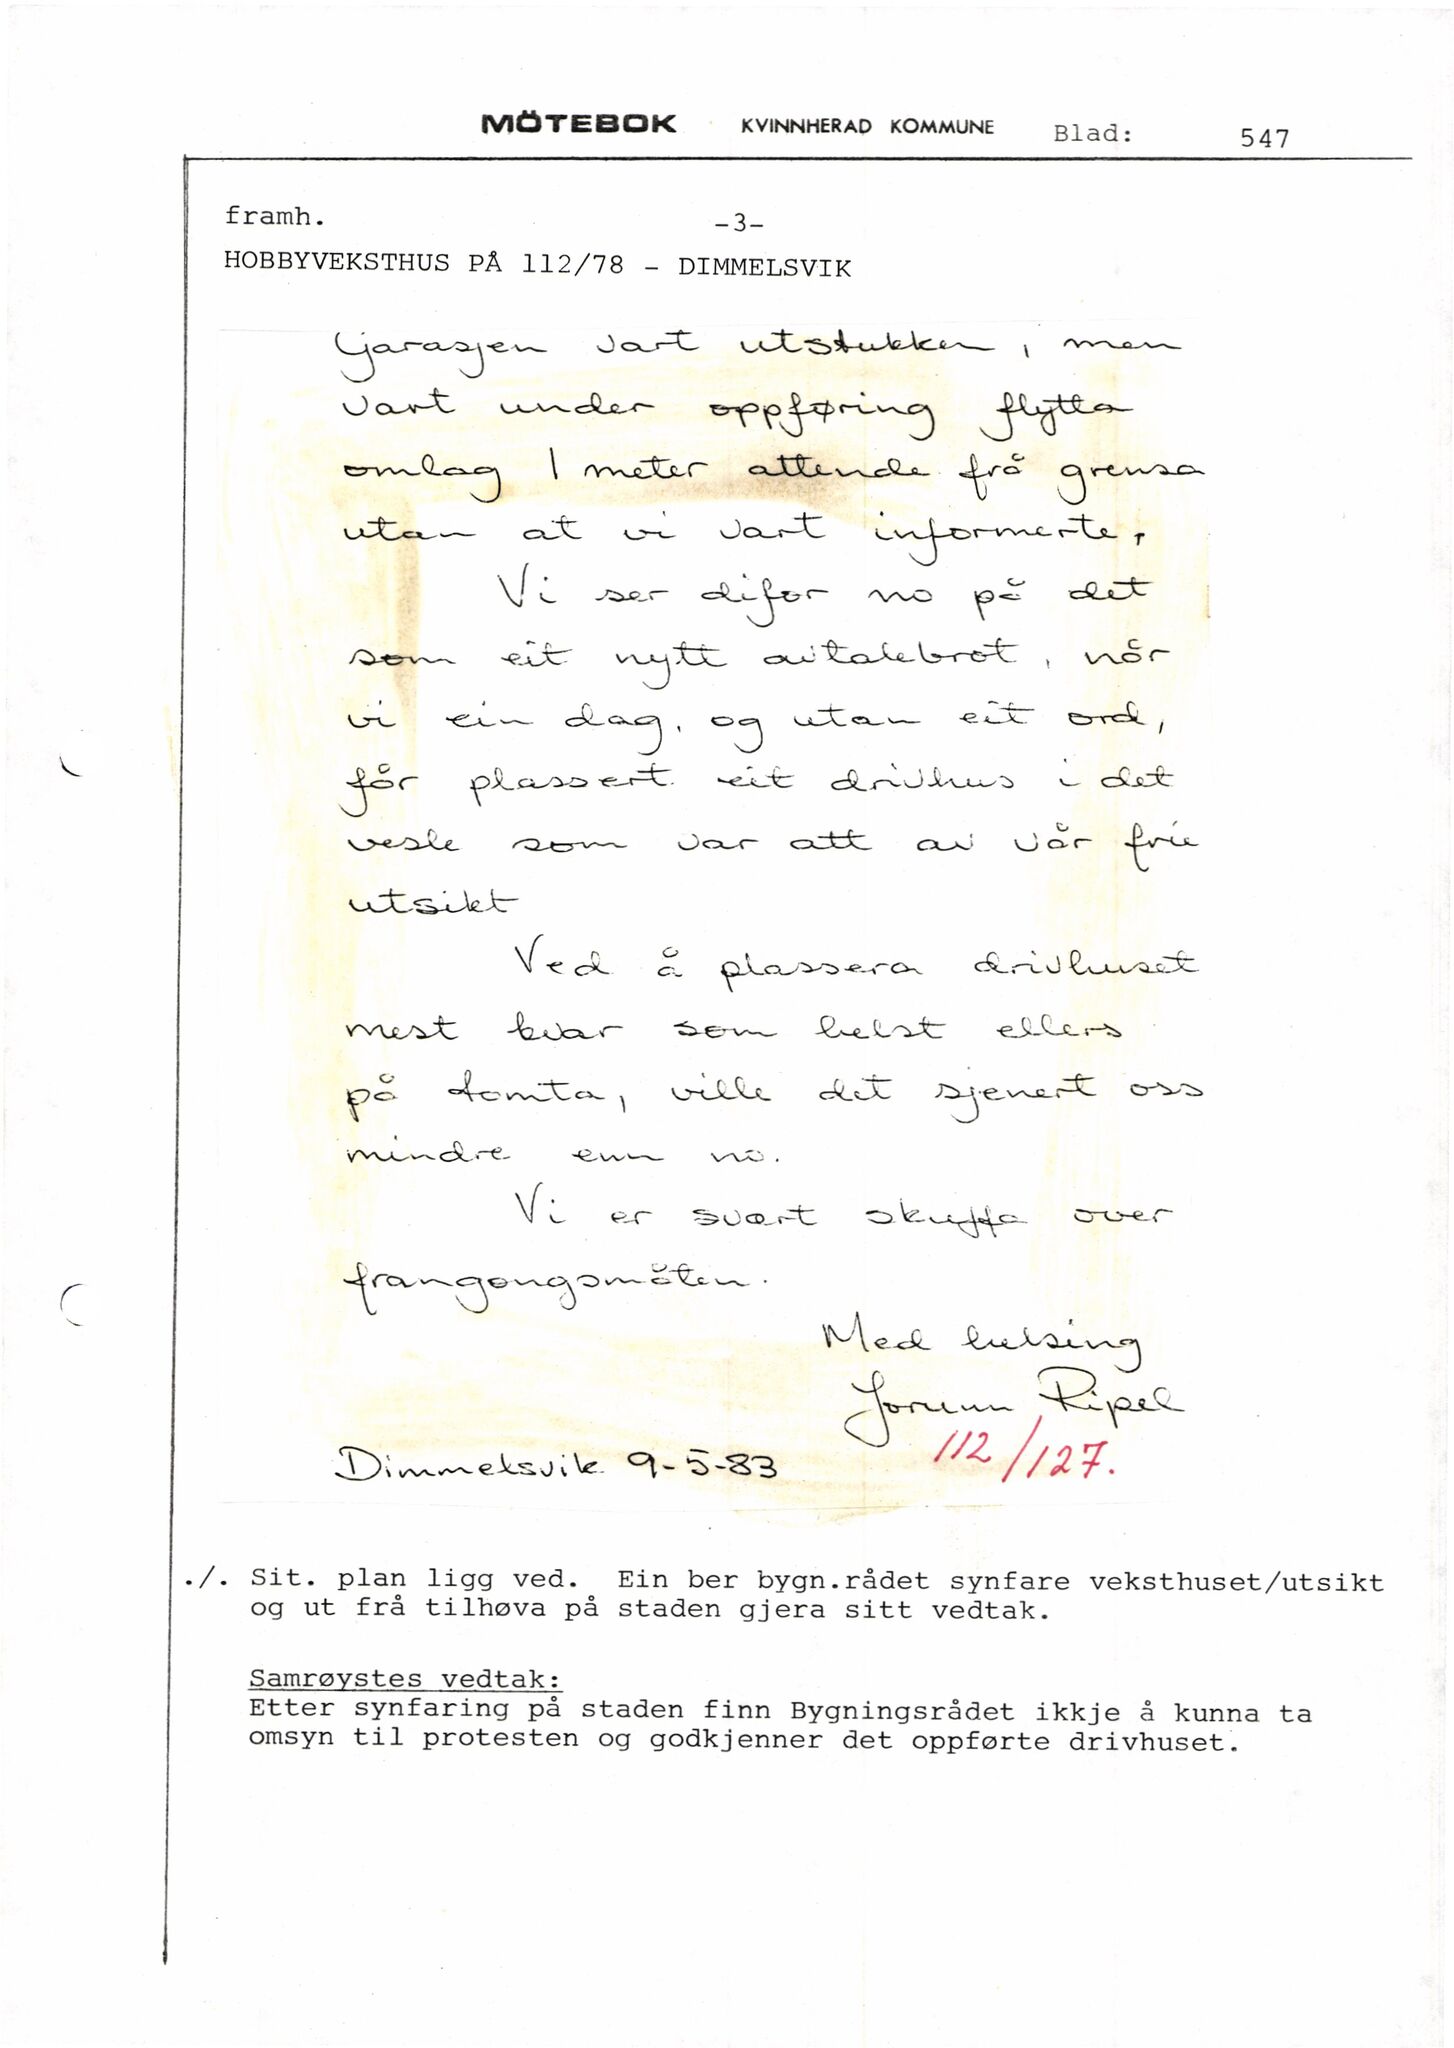 MÖTEBOK KVINNHERAD KOMMUNE Blad: 547
framh. -3-
HOBBYVEKSTHUS PÅ 112/78 - DIMMELSVIK
Garasjen vart utstukken, men
vart under oppføring flytta
omlag 1 meter attende frå grensa
utan at vi vart informerte.
Vi ser difor no på det
som eit nytt avtalebrot, når
vi ein dag, og utan eit ord,
får plassert eit drivhus i det
vesle som var att av vår frie
utsikt
Ved å plassera drivhuset
mest kvar som helst ellers
på tomta, ville det sjenert oss
mindre enn no.
Vi er svært skuffa over
frangongsmåten.
Med helsing
Jorunn Ripel
112/127.
Dimmelsvik 9-5-83
./. Sit. plan ligg ved. Ein ber bygn.rådet synfare veksthuset/utsikt
og ut frå tilhøva på staden gjera sitt vedtak.
Samrøystes vedtak:
Etter synfaring på staden finn Bygningsrådet ikkje å kunna ta
omsyn til protesten og godkjenner det oppførte drivhuset.